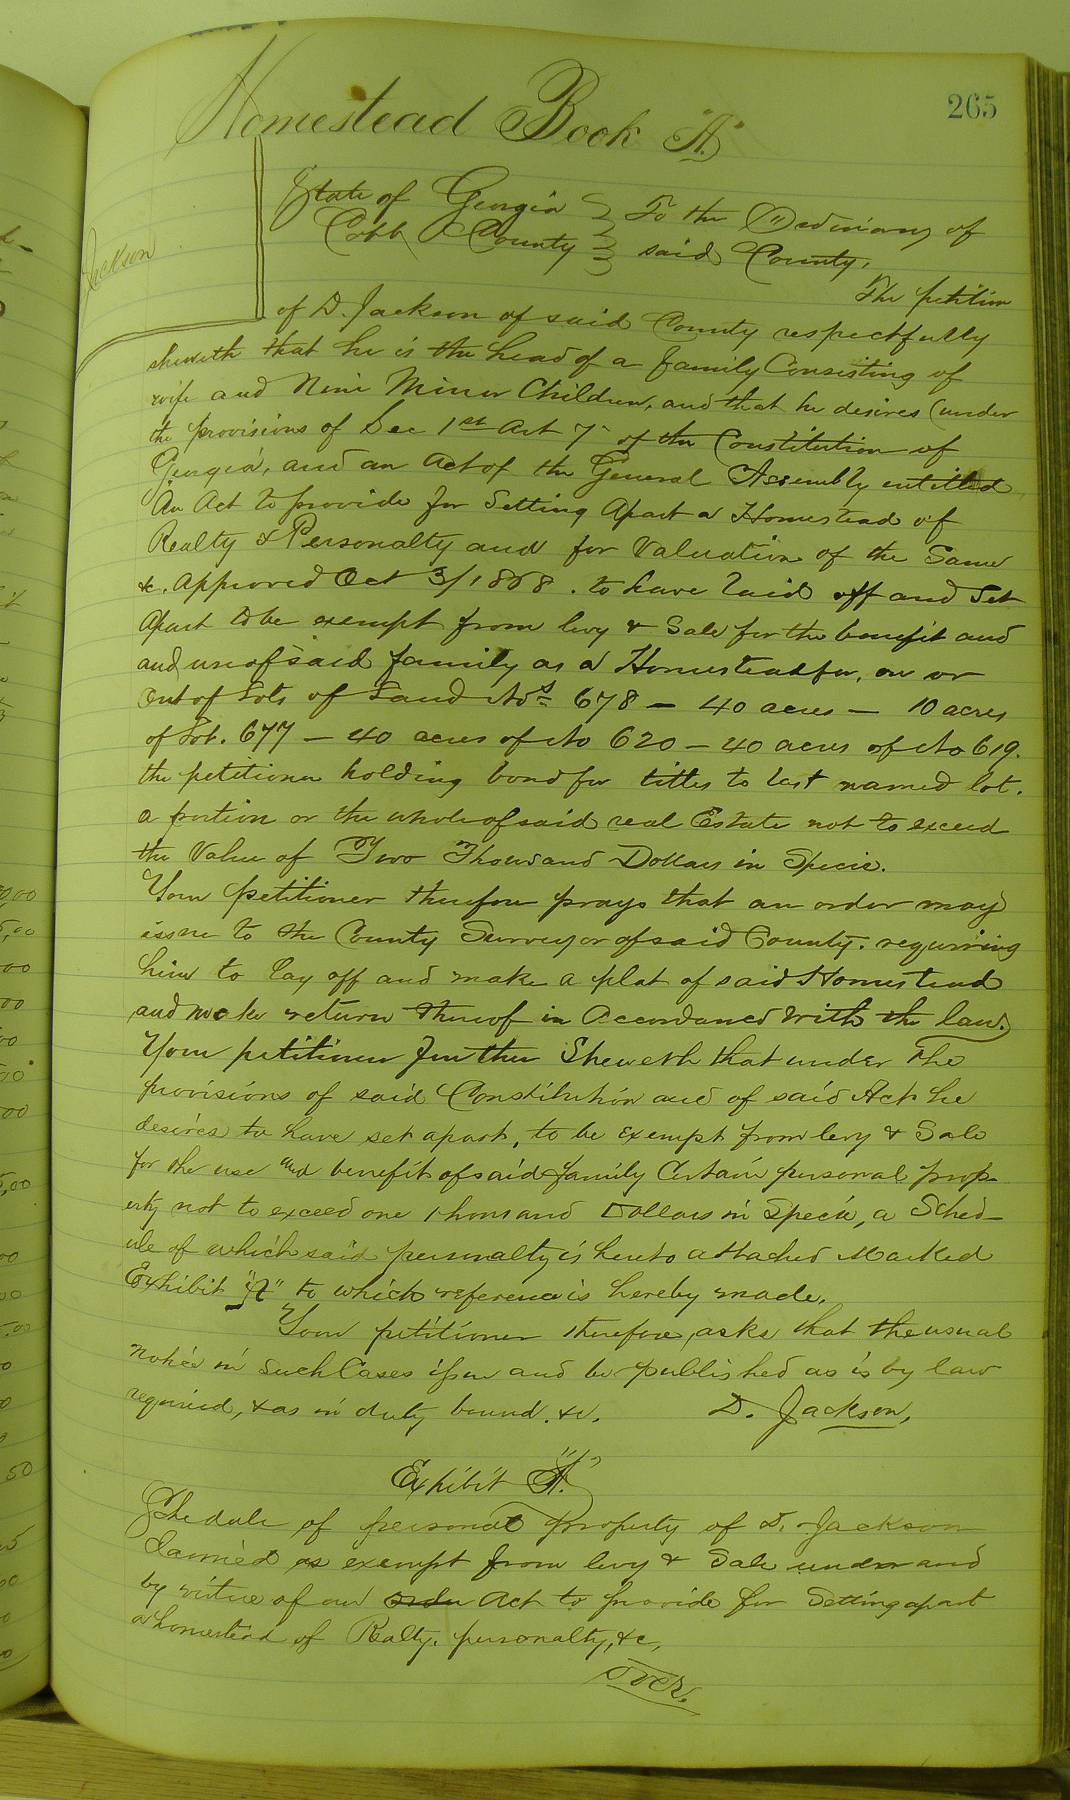 Homestead Book "A"
265
Jackson
State of Georgia } To the Ordinary of
Cobb County } said County,
The petition
of D. Jackson of said County respectfully
sheweth that he is the head of a family Consisting of
wife and Nine Minor Children, and that he desires (under
the provisions of Sec 1st Art 7" of the Constitution of
Georgia, and an Act of the General Assembly entitled
An Act to provide for Setting Apart a Homestead of
Realty & Personalty and for Valuation of the Same
&c. Approved Oct 3/1868. to have laid off and Set
Apart to be exempt from levy & Sale for the benefit and
and use of said family as a Homestead for, on or
Out of Lots of Land Nos 678 — 40 acres — 10 acres
of Lot. 677 — 40 acres of No 620 — 40 acres of No 619.
the petitioner holding bond for titles to last named lot.
a portion or the whole of said real Estate not to exceed
the Value of Two Thousand Dollars in Specie.
Your petitioner therefore prays that an order may
issue to the County Surveyor of said County. requiring
him to lay off and make a plat of said Homestead
and make return thereof in Accordance with the law.
Your petitioner further Sheweth that under the
provisions of said Constitution and of said Act he
desires to have set apart, to be exempt from levy & Sale
for the use and benefit of said family Certain personal prop-
erty not to exceed one thousand Dollars in Specie, a Sched-
ule of which said personalty is hereto attached Marked
Exhibit "A" to which reference is hereby made.
Your petitioner therefore, asks that the usual
notice in Such Cases issue and be published as is by law
required, & as in duty bound. &c. D. Jackson,
Exhibit "A."
Schedule of personal property of D. Jackson
Claimed as exempt from levy & Sale under and
by virtue of an Act to provide for Setting apart
a homestead of Realty, personalty, &c,
Over.